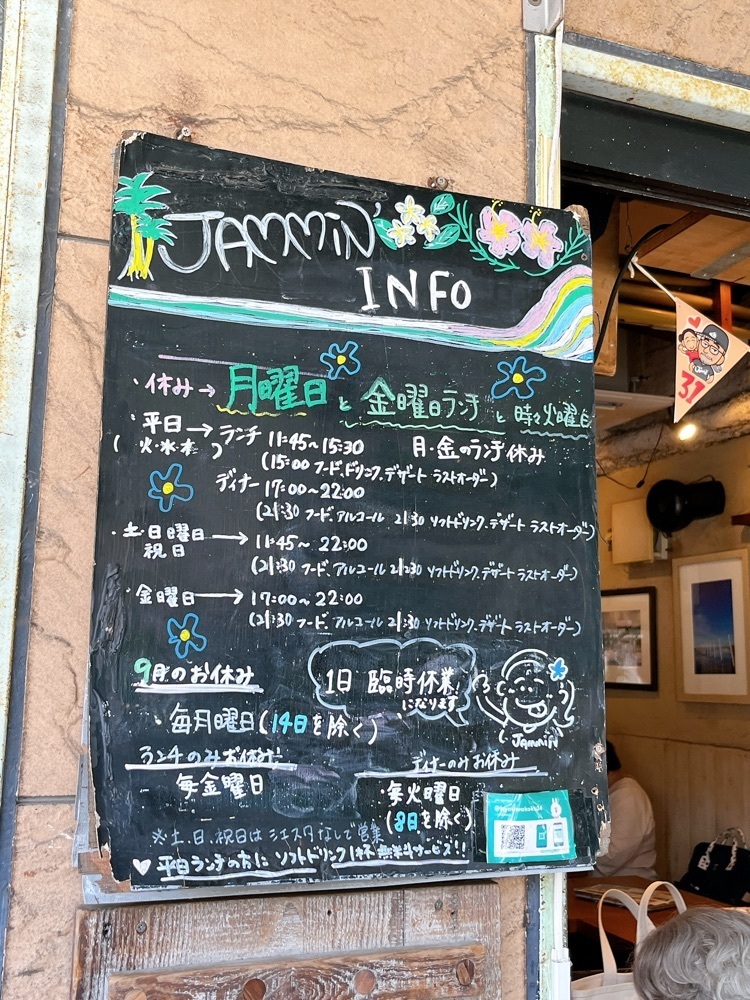 JAMMIN'
INFO
・休み→月曜日と金曜日ランチと時々火曜日
・平日→ランチ 11:45~15:30 月・金のランチ休み
(火・水・木)
(15:00 フード、ドリンク、デザート ラストオーダー)
ディナー 17:00~22:00
(21:30 フード、アルコール 21:30 ソフトドリンク、デザート ラストオーダー)
・土・日曜日→11:45~22:00
祝日
(21:30 フード、アルコール 21:30 ソフトドリンク、デザート ラストオーダー)
・金曜日→17:00~22:00
(21:30 フード、アルコール 21:30 ソフトドリンク、デザート ラストオーダー)
9月のお休み
1日 臨時休業
になります
Jammin'
・毎月曜日(14日を除く)
ランチのみお休み
毎金曜日
ディナーのみお休み
・毎火曜日
(8日を除く)
※土、日、祝日はシエスタなしで営業
♡平日ランチの方に ソフトドリンク1杯 無料サービス!!
37